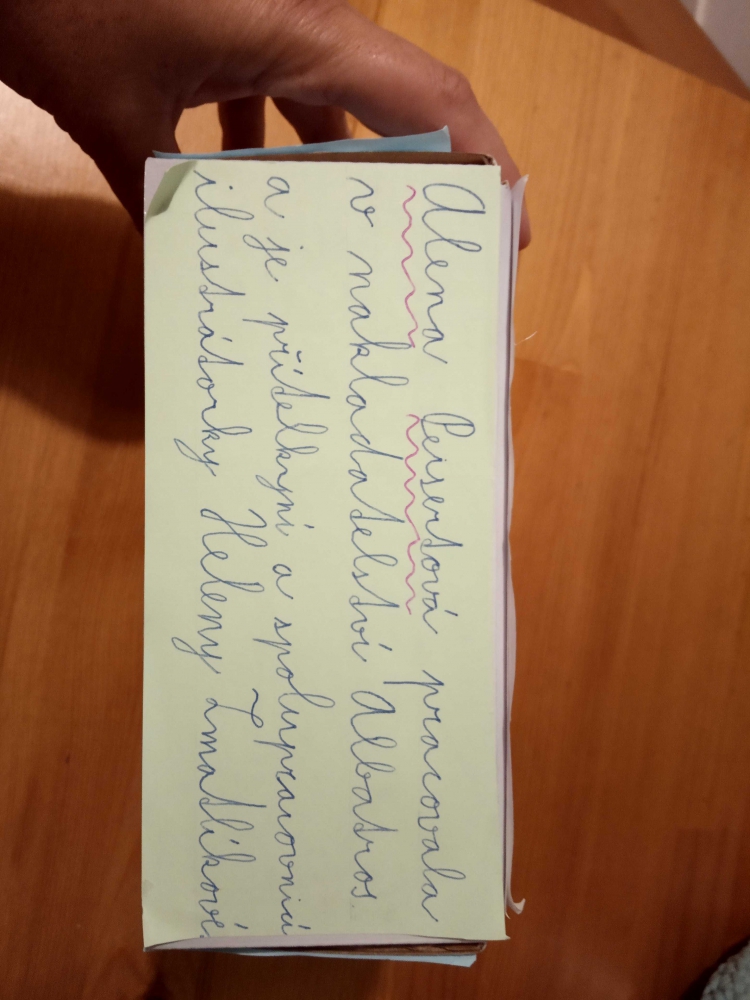 Alena Peisertová pracovala
v nakladatelství Albatros
a je přítelkyní a spolupracovnicí
ilustrátorky Heleny Zmatlíkové.